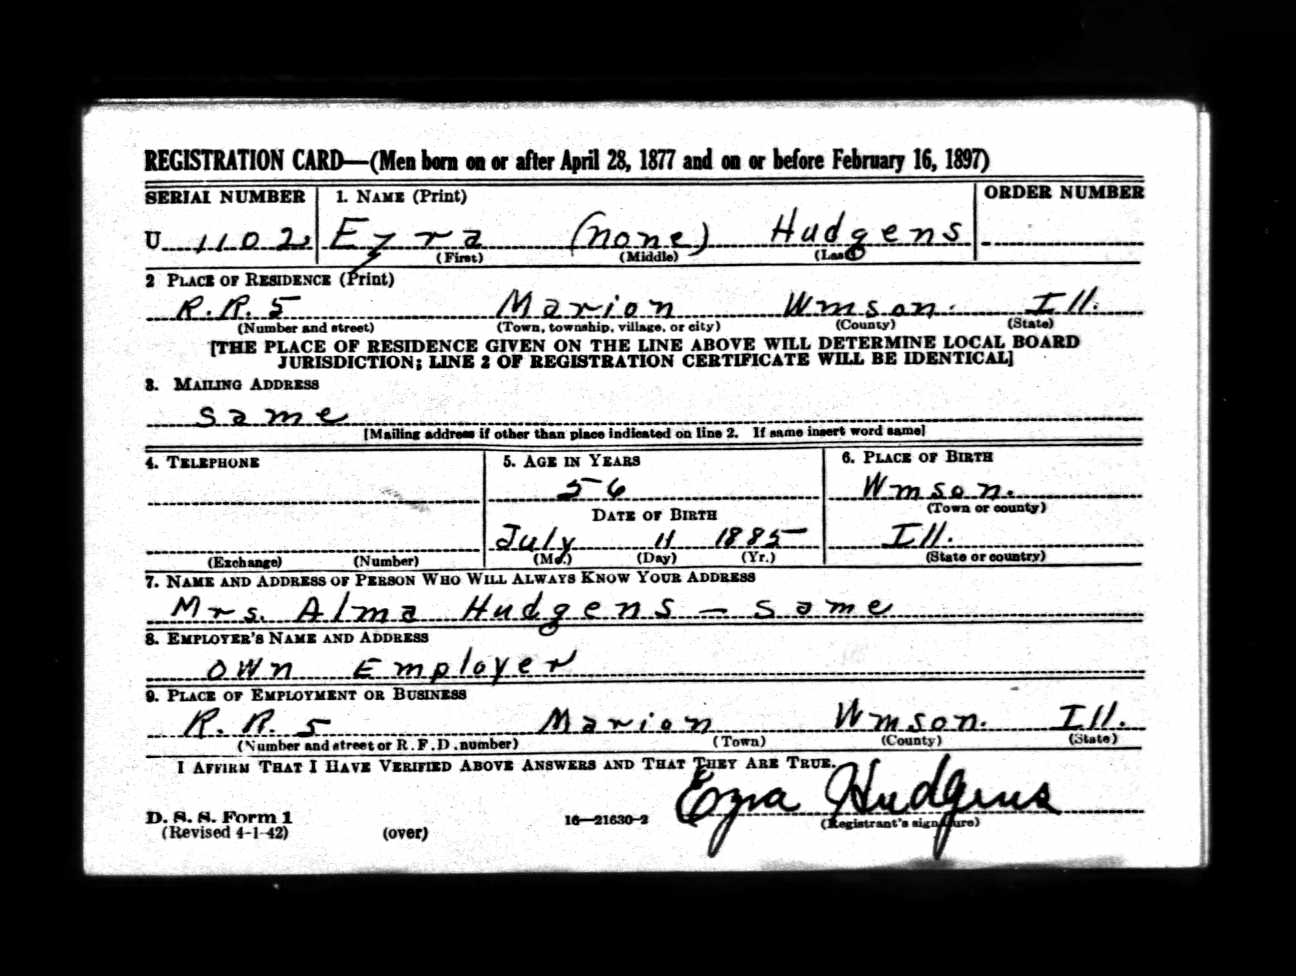 REGISTRATION CARD—(Men born on or after April 28, 1877 and on or before February 16, 1897)
SERIAL NUMBER 1. NAME (Print) ORDER NUMBER
U 1102 Ezra (none) Hudgens
(First) (Middle) (Last)
2 PLACE OF RESIDENCE (Print)
R.R. 5 Marion Wmson. Ill.
(Number and street) (Town, township, village, or city) (County) (State)
[THE PLACE OF RESIDENCE GIVEN ON THE LINE ABOVE WILL DETERMINE LOCAL BOARD
JURISDICTION; LINE 2 OF REGISTRATION CERTIFICATE WILL BE IDENTICAL]
3. MAILING ADDRESS
same
[Mailing address if other than place indicated on line 2. If same insert word same]
4. TELEPHONE 5. AGE IN YEARS 6. PLACE OF BIRTH
56 Wmson.
(Town or county)
DATE OF BIRTH
July 11 1885 Ill.
(Exchange) (Number) (Mo.) (Day) (Yr.) (State or country)
7. NAME AND ADDRESS OF PERSON WHO WILL ALWAYS KNOW YOUR ADDRESS
Mrs. Alma Hudgens — same
8. EMPLOYER'S NAME AND ADDRESS
own Employer
9. PLACE OF EMPLOYMENT OR BUSINESS
R.R. 5 Marion Wmson. Ill.
(Number and street or R. F. D. number) (Town) (County) (State)
I AFFIRM THAT I HAVE VERIFIED ABOVE ANSWERS AND THAT THEY ARE TRUE.
Ezra Hudgens
D. S. S. Form 1
(Revised 4-1-42) (over) 16—21630-2 (Registrant's signature)